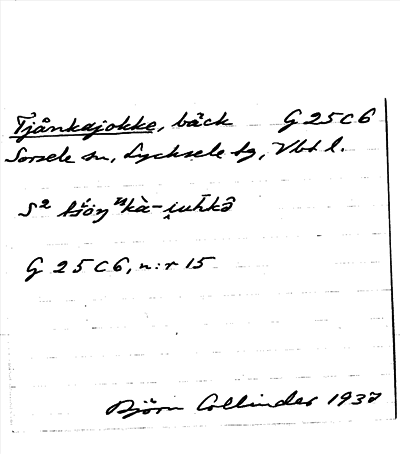 Tjånkajokke, bäck G 25 C 6
Sorsele sn, Lycksele tg, Vbt l.
S²
G 25 C 6, n:r 15
Björn Collinder 1937